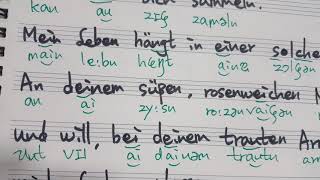 sich sammeln.
kau au zɪç zaməln
Mein Leben hängt in einer solche
main le:bn hɛŋt ainɐ zɔlçən
An deinem süßen, rosenweichen
an ai zy:sn ro:zənvaiçən
und will, bei deinem trauten Ar
ʊnt vɪl ai dainəm trautn